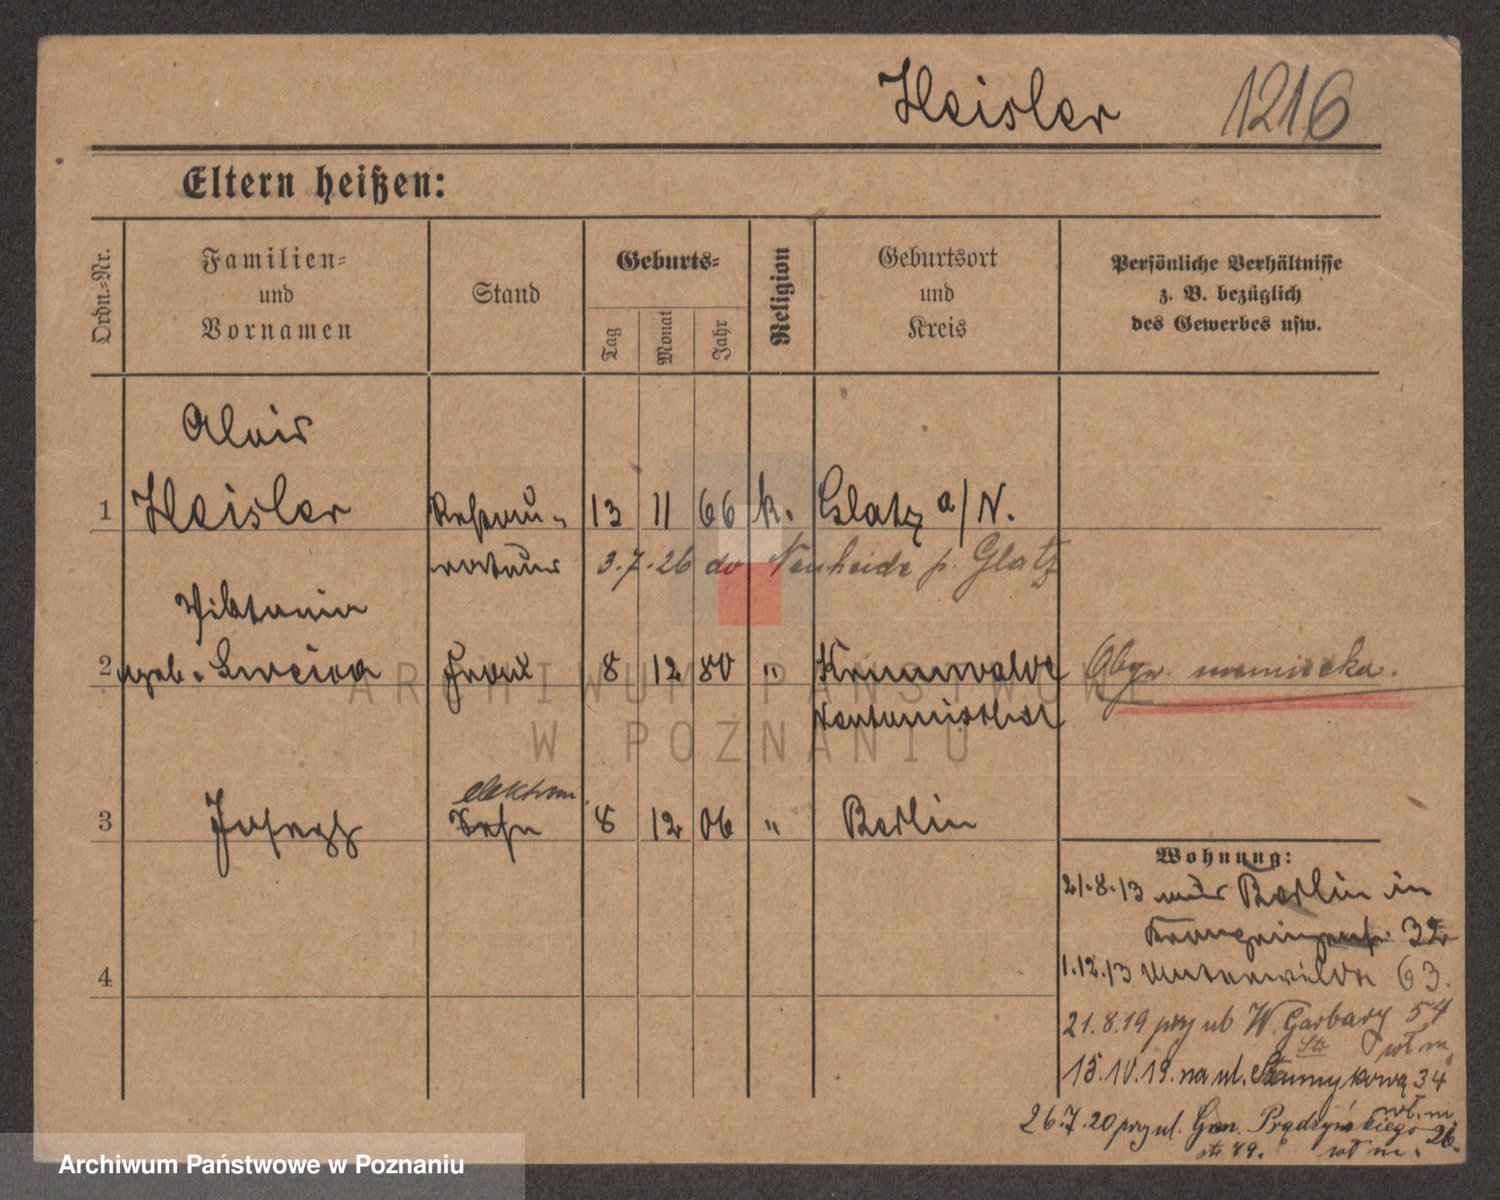 Heisler 1216
Eltern heißen:
Ordn.-Nr.
Familien-
und
Vornamen
Stand
Geburts-
Tag
Monat
Jahr
Religion
Geburtsort
und
Kreis
Persönliche Verhältnisse
z. B. bezüglich
des Gewerbes usw.
Alois
1 Heisler 13 11 66 k. Glatz a/N.
3.7.26 do Neuheide p. Glatz
Viktoria
2 geb. Frau 8 12 80 "
Obyw. niemiecka.
elektrom.
3 Josef 8 12 06 " Berlin
Wohnung:
21.8.13 aus Berlin in
Kronprinzenstr. 32
1.12.13 Unterwilda 63.
21.8.19 przy ul W. Garbary 54
wł m,
Str
15.IV.19. na ul. 34
wł. m
26.7.20 przy ul. Gen. Prądzyńskiego 26.
str 49. wł m.
4
ARCHIWUM PAŃSTWOWE
W POZNANIU
Archiwum Państwowe w Poznaniu